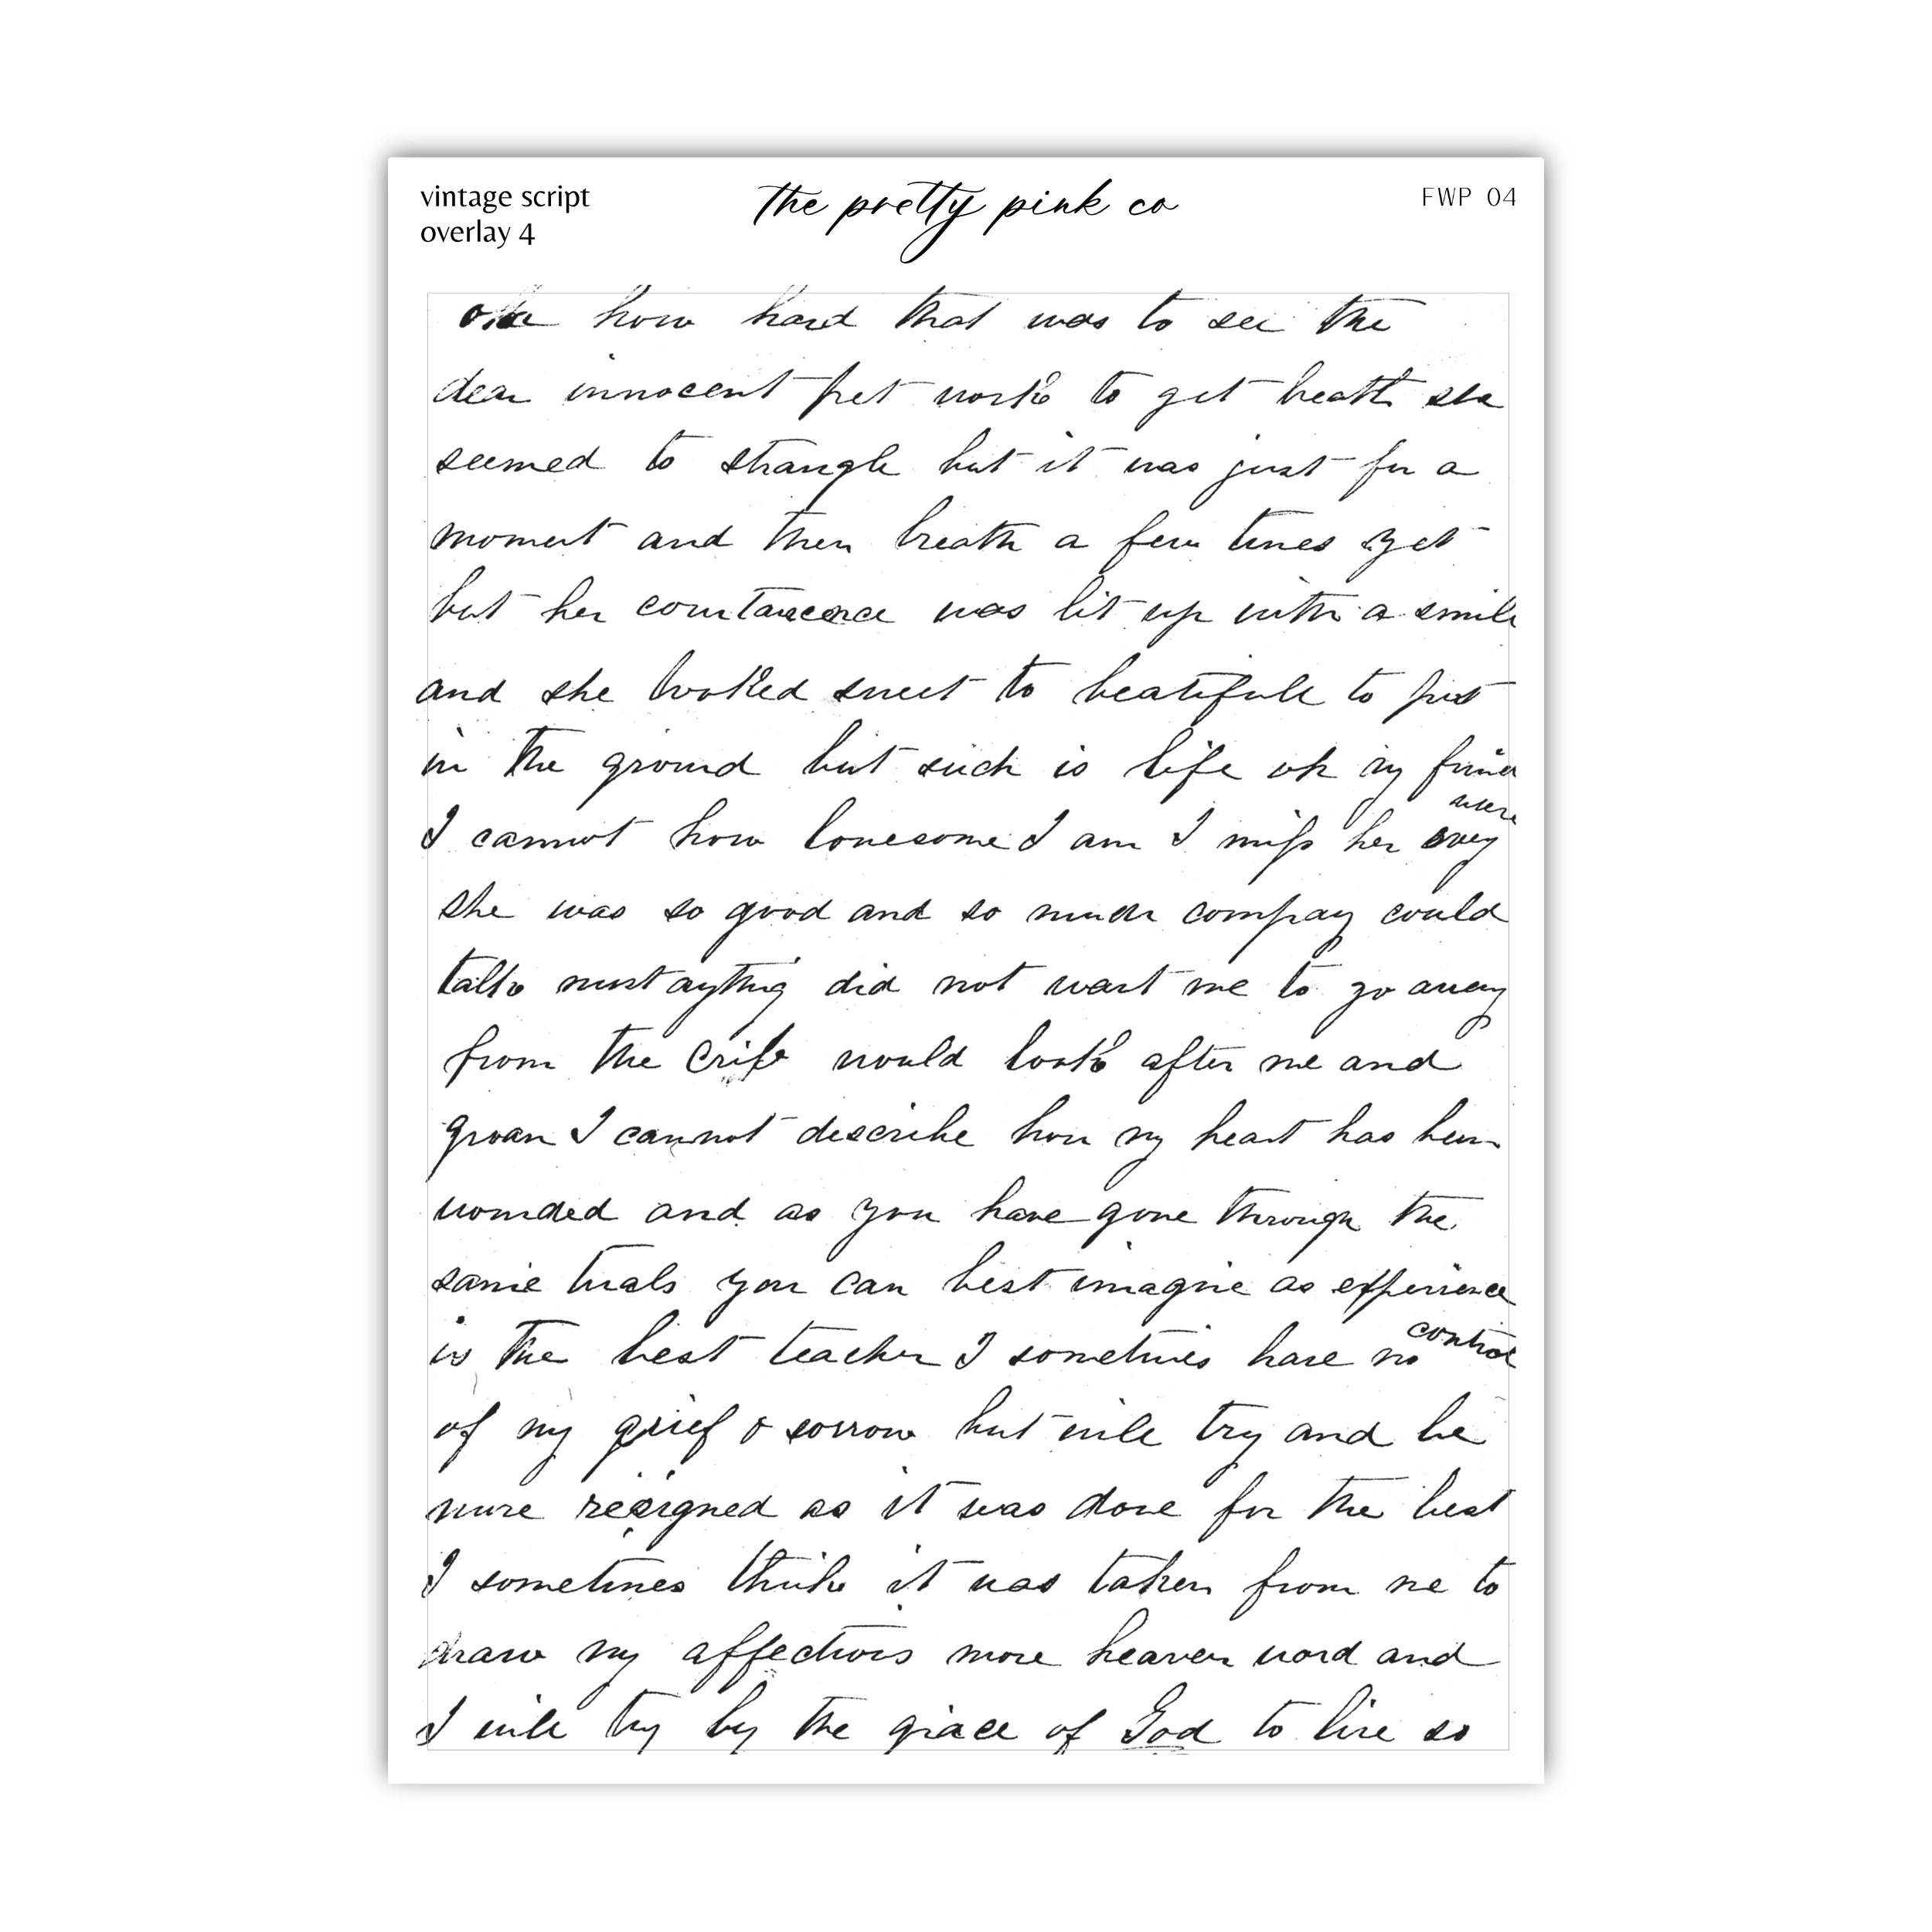 vintage script
overlay 4
the pretty pink co
FWP 04
how hard that was to see the
dear innocent pet work to get breath she
seemed to strangle but it was just for a
moment and then breath a few times yet
but her countanence was lit up with a smile
and she looked sweet to beatifull to put
in the ground but such is life oh my friend
I cannot how lonesome I am I miss her every
where
she was so good and so much compay could
talk most aything did not want me to go away
from the crib would look after me and
groan I cannot describe how my heart has been
wounded and as you have gone through the
same trials you can best imagine as experience
is the best teacher I sometimes have no control
of my grief & sorrow but will try and be
more resigned as it was done for the best
I sometimes think it was taken from me to
draw my affections more heaven ward and
I will try by the grace of God to live so